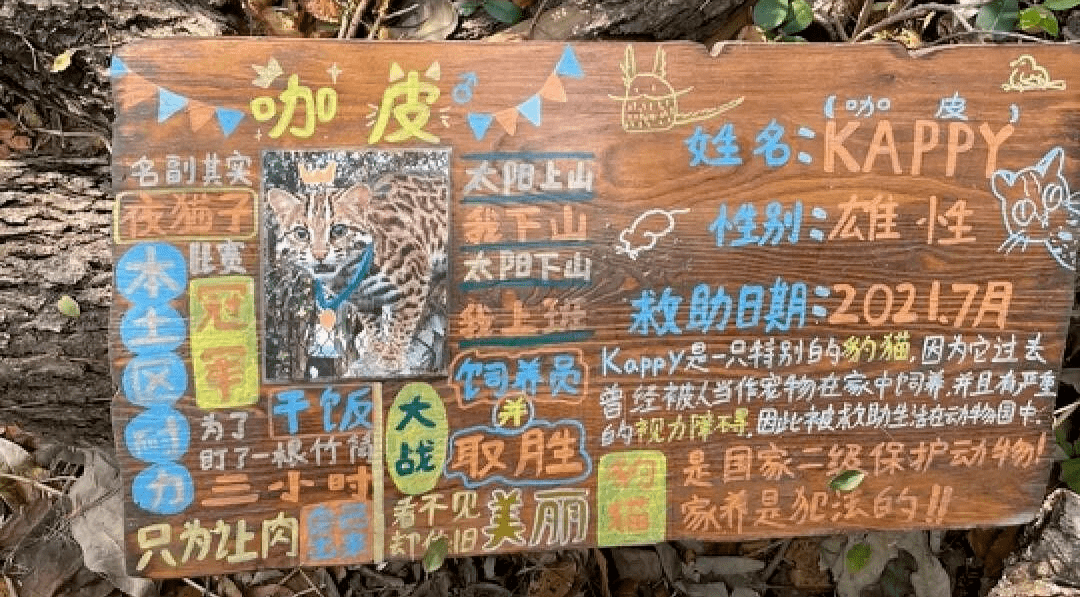 咖皮♂
名副其实
夜猫子
本土区耐力
比赛
冠军
为了
干饭
盯了一根竹筒
三小时
只为让肉
自己出来
太阳上山
我下山
太阳下山
我上班
大战
饲养员
并
取胜
看不见
却依旧
美丽
(咖皮)
姓名:KAPPY
性别:雄性
救助日期:2021.7月
Kappy是一只特别的豹猫,因为它过去
曾经被人当作宠物在家中饲养,并且有严重
的视力障碍,因此被救助生活在动物园中.
豹猫
是国家二级保护动物!
家养是犯法的!!